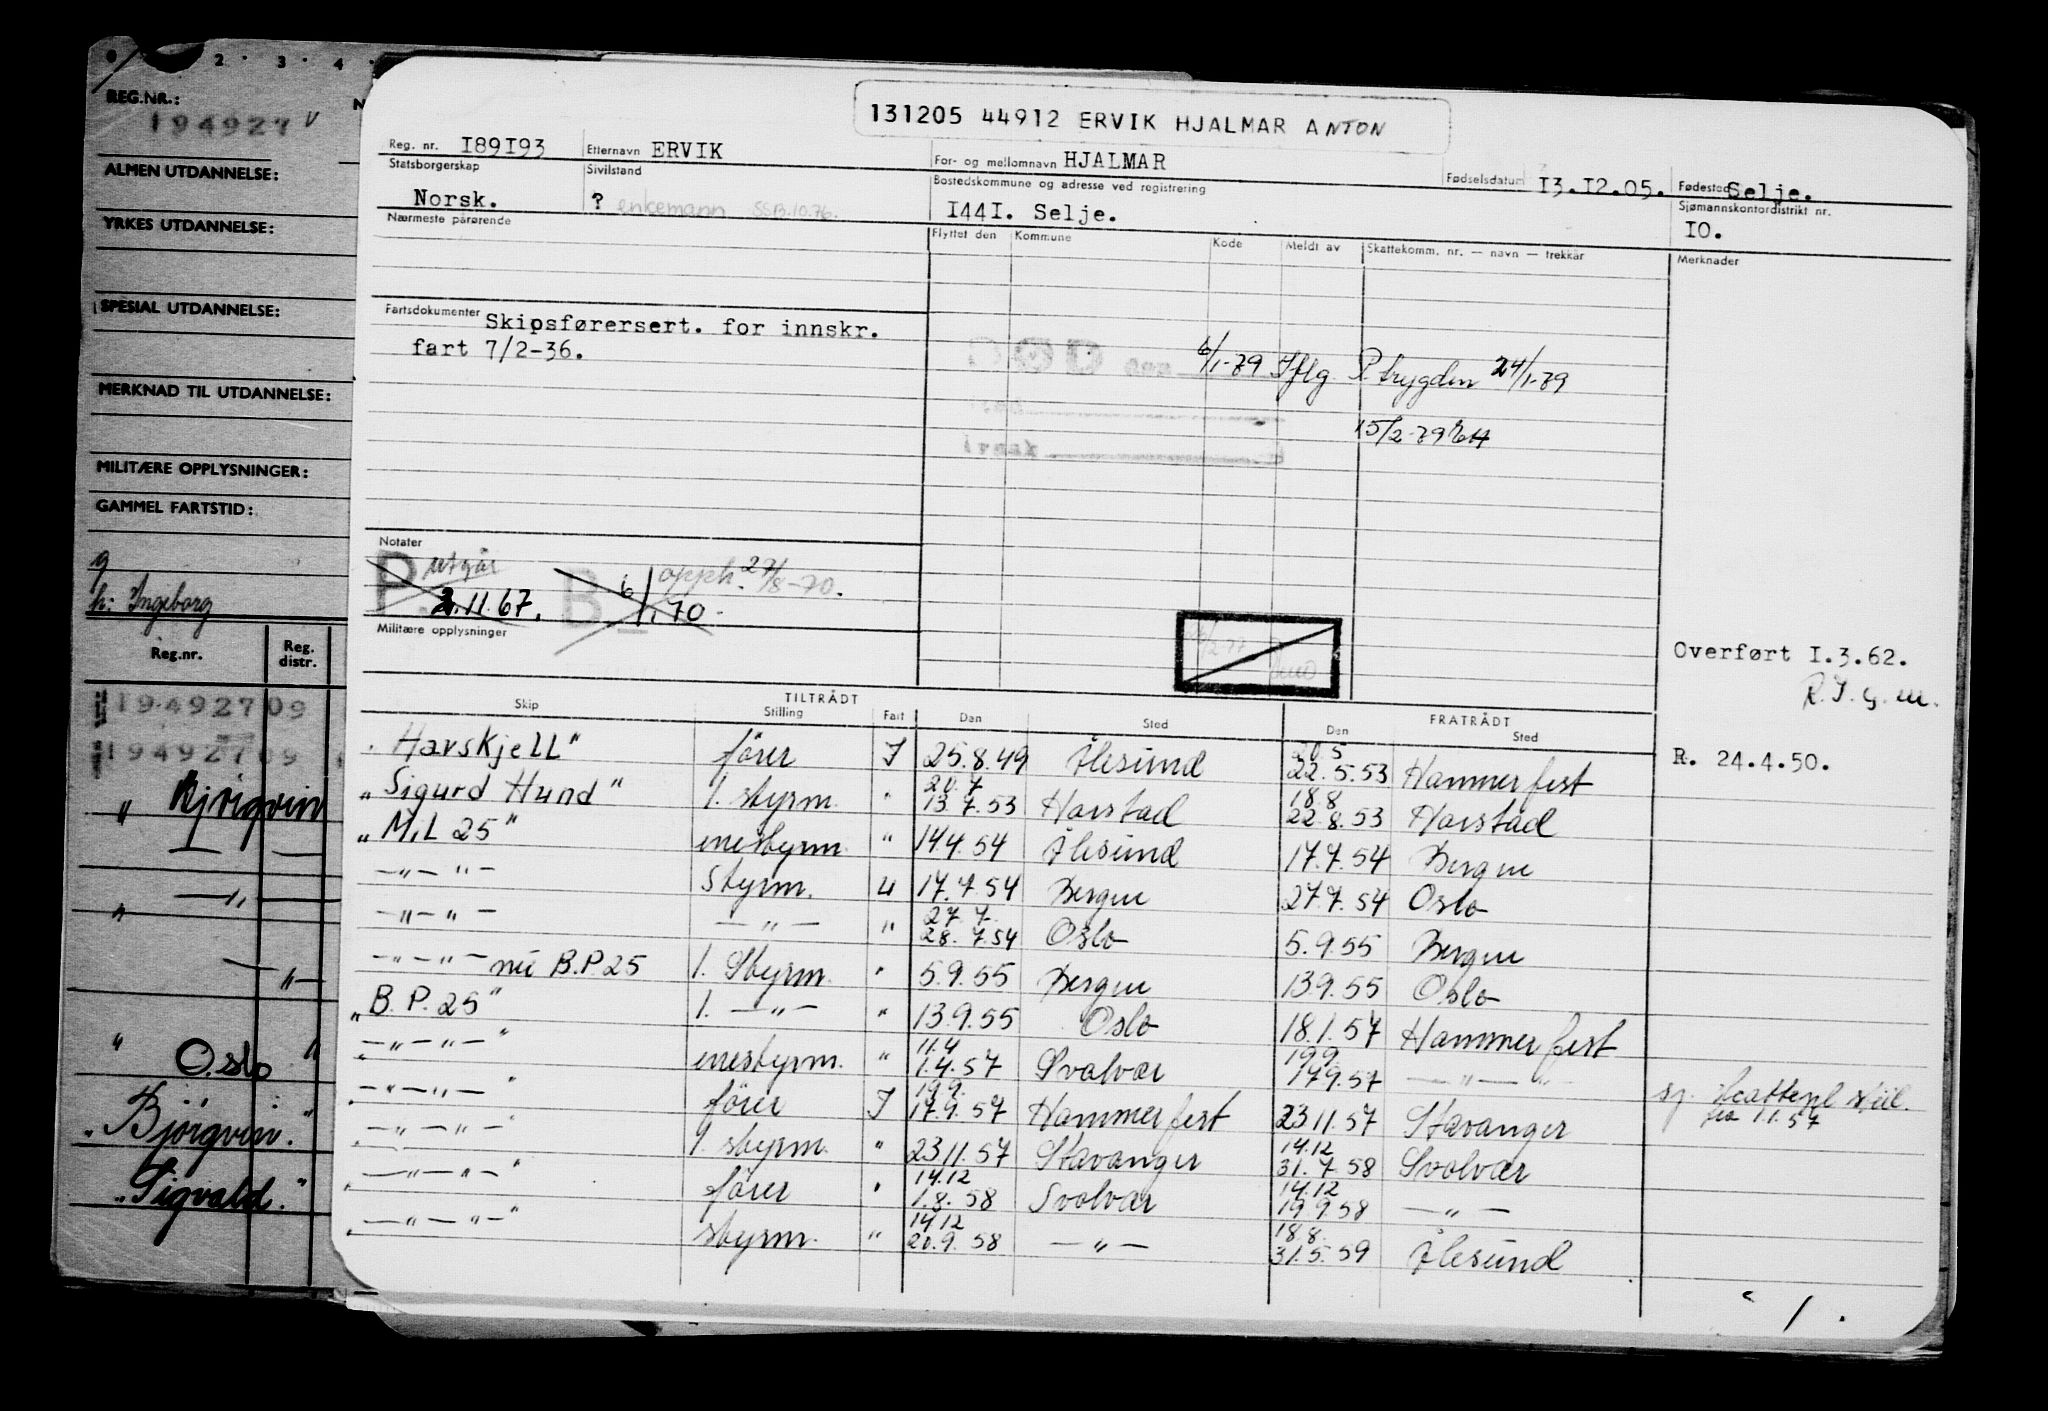 2 · 3 · 4 ·
REG.NR.:
194927 v
ALMEN UTDANNELSE:
YRKES UTDANNELSE:
SPESIAL UTDANNELSE:
MERKNAD TIL UTDANNELSE:
MILITÆRE OPPLYSNINGER:
GAMMEL FARTSTID:
g
h: Ingeborg
Reg.nr. Reg. distr.
194927 09
194927 09
" Bjørgvin
" —"—
—"—
" Oslo "
"Bjørgvin."
"Sigvald."
131205 44912 ERVIK HJALMAR ANTON
Reg. nr. I89I93 Etternavn ERVIK For- og mellomnavn HJALMAR Fødselsdatum I3.I2.05. Fødested Selje.
Statsborgerskap Sivilstand Bostedskommune og adresse ved registrering Sjømannskontordistrikt nr.
Norsk. ? enkemann SSB.10.76. I44I. Selje. IO.
Nærmeste pårørende Flyttet den Kommune Kode Meldt av Skattekomm. nr. — navn — trekkår Merknader
Fartsdokumenter Skipsførersert. for innskr.
fart 7/2-36.
DØD den 6/1-79 Iflg. P.trygden 24/1-79
15/2-79
Notater
P. utgår 2.11.67. B 6/1 70 opph. 27/8-70.
Militære opplysninger
Overført I.3.62.
TILTRÅDT FRATRÅDT
Skip Stilling Fart Den Sted Den Sted
R. 24.4.50.
"Havskjell" fører I 25.8.49 Ålesund 20.5 22.5.53 Hammerfest
"Sigurd Hund" 1. styrm. " 20.7 13.7.53 Harstad 18.8 22.8.53 Harstad
"M.L 25" enestyrm. " 14.4.54 Ålesund 17.7.54 Bergen
—"— "— Styrm. U 17.7.54 Bergen 27.7.54 Oslo
—"—"— —"— " 27.7. 28.7.54 Oslo 5.9.55 Bergen
—"—"— nu B.P.25 1. Styrm. " 5.9.55 Bergen 13.9.55 Oslo
"B.P.25" 1. —"— " 13.9.55 Oslo 18.1.57 Hammerfest
"—"—"—" enestyrm. " 11.4 1.4.57 Svolvær 19.9. 17.9.57 —"—"
"—"—"—" fører I 19.9. 17.9.57 Hammerfest 23.11.57 Stavanger
fra 1.1.57
"—"—"—" 1. styrm. " 23.11.57 Stavanger 14.12 31.7.58 Svolvær
"—"—"—" fører " 14.12 1.8.58 Svolvær 14.12 19.9.58 —"—
"—"—"—" styrm. " 14.12 20.9.58 —"— 18.8. 31.5.59 Ålesund
1.